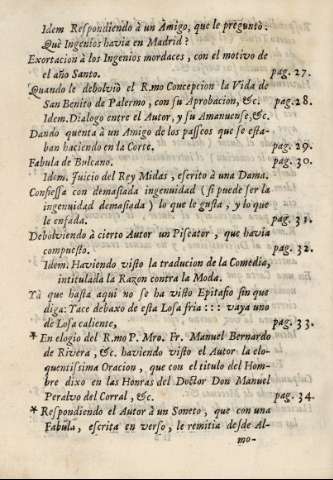 Idem Respondiendo à un Amigo, que le preguntò:
Què Ingenios havia en Madrid?
Exortacion à los Ingenios mordaces, con el motivo de
el año Santo. pag. 27.
Quando le debolviò el R.mo Concepcion la Vida de
San Benito de Palermo, con su Aprobacion, &c. pag. 28.
Idem. Dialogo entre el Autor, y su Amanuense, &c.
Dando quenta à un Amigo de los passeos que se esta-
ban haciendo en la Corte. pag. 29.
Fabula de Bulcano. pag. 30.
Idem. Juicio del Rey Midas, escrito à una Dama.
Confiessa con demasiada ingenuidad (si puede ser la
ingenuidad demasiada) lo que le gusta, y lo que
le enfada. pag. 31.
Debolviendo à cierto Autor un Piscator, que havia
compuesto. pag. 32.
Idem. Haviendo visto la traducion de la Comedia,
intitulada la Razon contra la Moda.
Yà que hasta aqui no se ha visto Epitafio sin que
diga: Tace debaxo de esta Losa fria ::: vaya uno
de Losa caliente, pag. 33.
* En elogio del R.mo P. Mro. Fr. Manuel Bernardo
de Rivera, &c. haviendo visto el Autor la elo-
quentissima Oracion, que con el titulo del Hom-
bre dixo en las Honras del Doctor Don Manuel
Peralvo del Corral, &c. pag. 34.
* Respondiendo el Autor à un Soneto, que con una
Fabula, escrita en verso, le remitia desde Al-
mo-